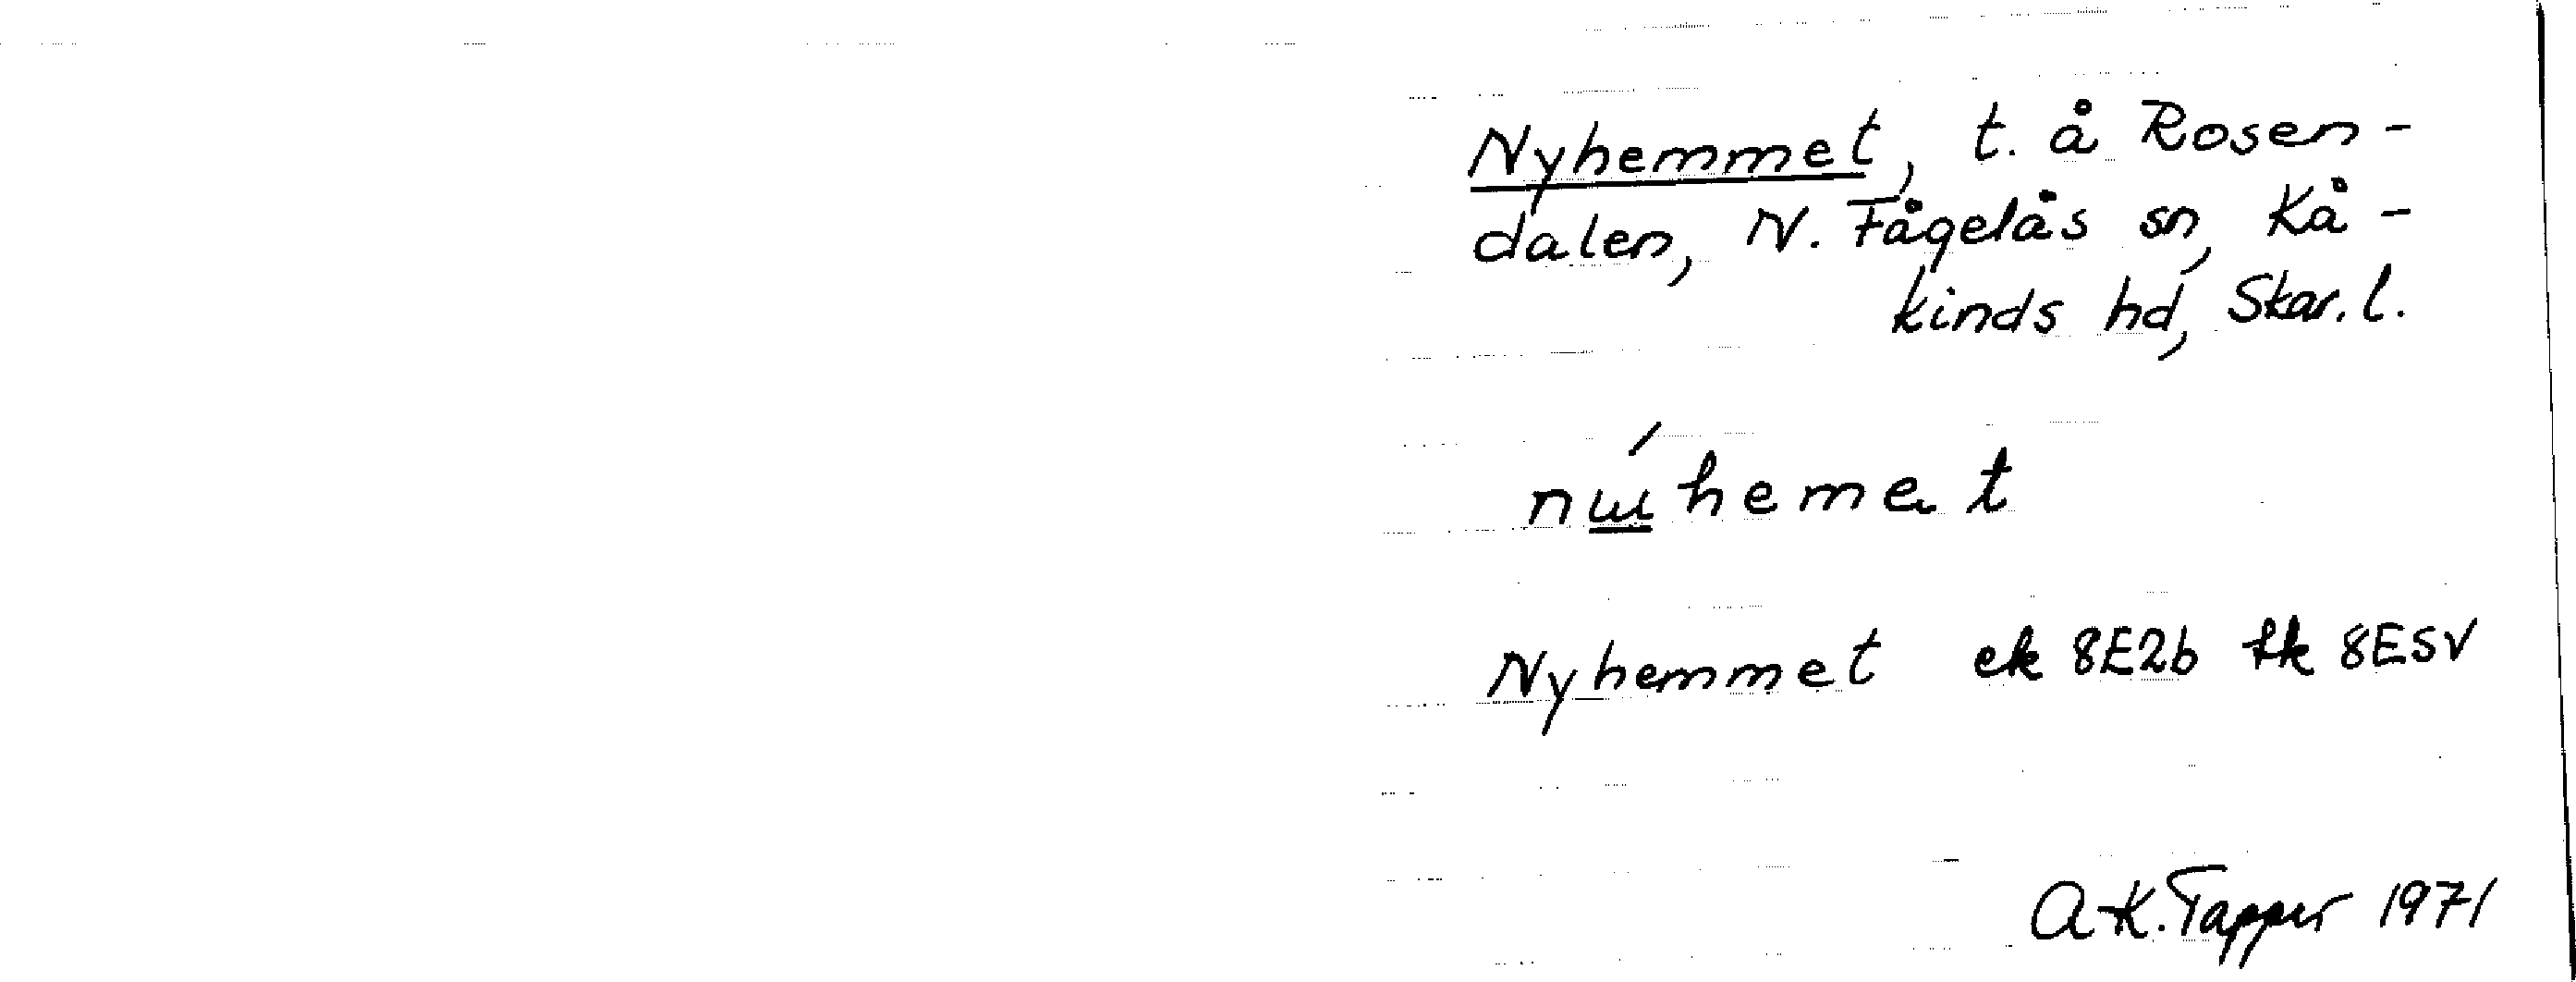 Nyhemmet, t. å Rosen-
dalen, N. Fågelås sn, Kå-
kinds hd, Skar. l.
Nyhemmet ek 8E2b tk 8ESV
A-K. Tapper 1971